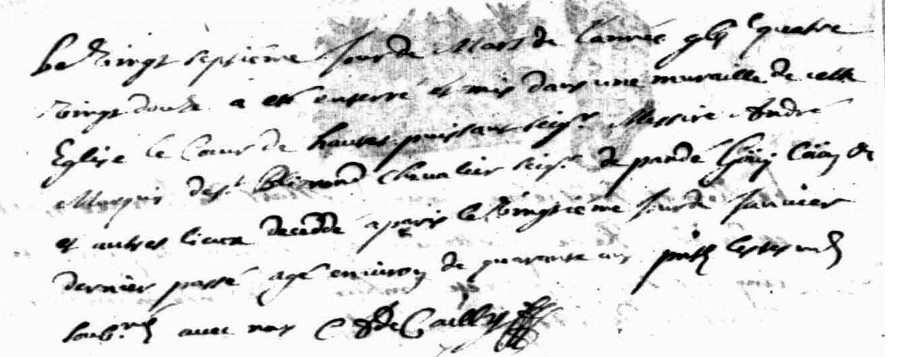 Le vingt septiéme Jour de Mars de L'année quatre
vingt douze a esté enterré et mis dans une muraille de cette
Eglise le Cœur de hautes puissant seigr. Messire André
Marquis de St Blimond Chevalier seigr. de pandé
et autres lieux decedé a paris le vingtiéme Jour de Janvier
dernier passé agé environ de quarante ans les tesm
soub avec nous de Cailly